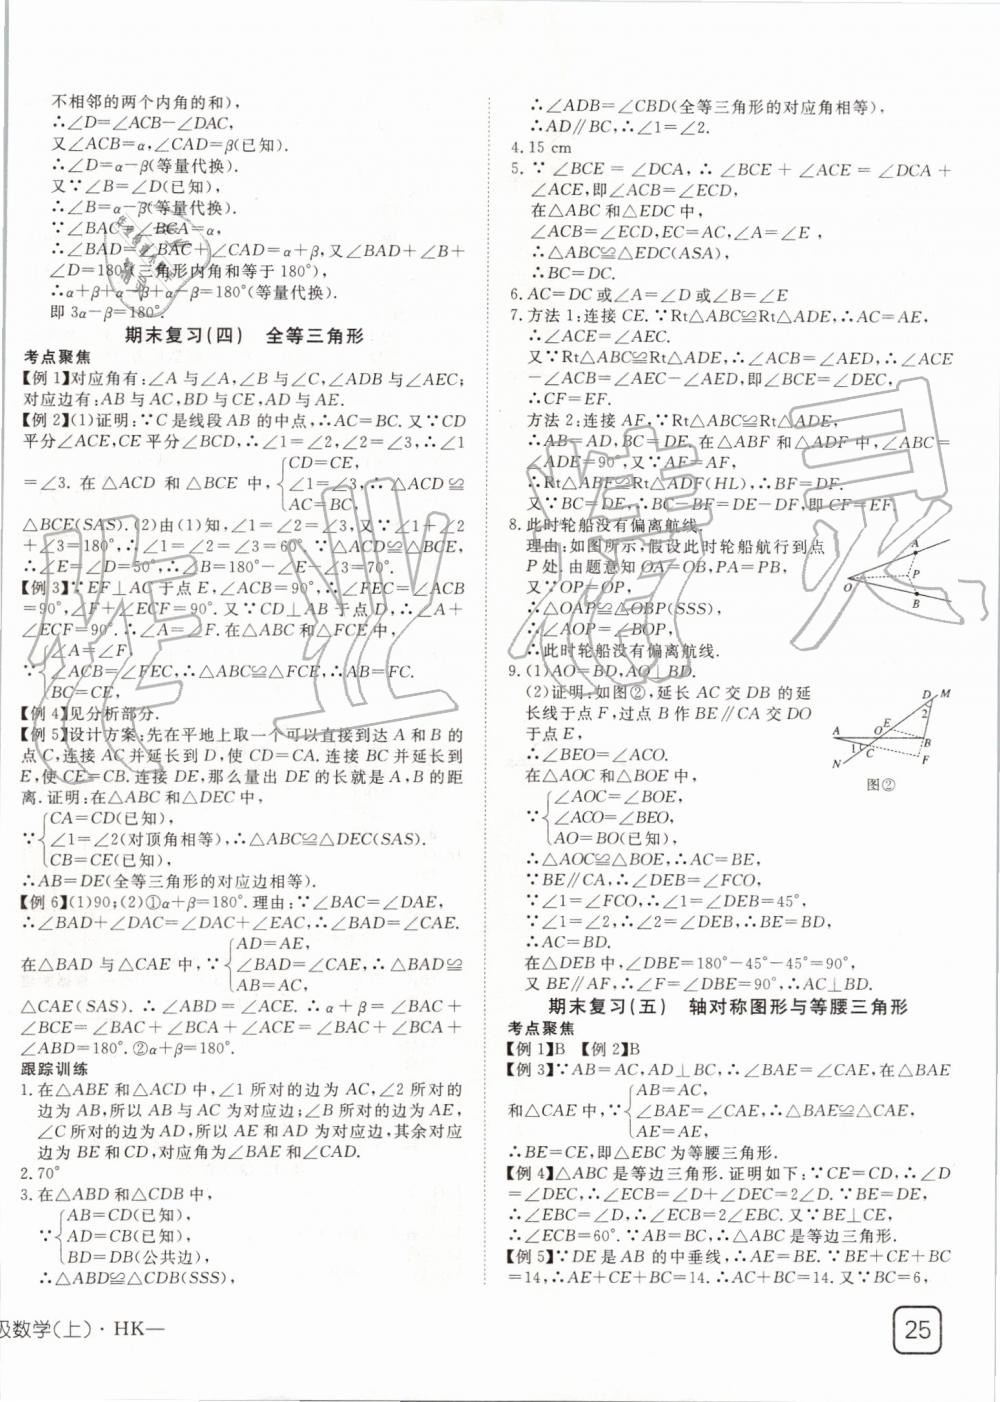 不相邻的两个内角的和),
∴∠D=∠ACB-∠DAC,
又∠ACB=α,∠CAD=β(已知).
∴∠D=α-β(等量代换).
又∵∠B=∠D(已知),
∴∠B=α-β(等量代换).
∵∠BAC=∠BCA=α,
∴∠BAD=∠BAC+∠CAD=α+β,又∠BAD+∠B+
∠D=180°(三角形内角和等于180°),
∴α+β+α-β+α-β=180°(等量代换).
即3α-β=180°.
期末复习(四) 全等三角形
考点聚焦
【例1】对应角有:∠A与∠A,∠B与∠C,∠ADB与∠AEC;
对应边有:AB与AC,BD与CE,AD与AE.
【例2】(1)证明:∵C是线段AB的中点,∴AC=BC.又∵CD
平分∠ACE,CE平分∠BCD,∴∠1=∠2,∠2=∠3,∴∠1
CD=CE,
=∠3.在△ACD和△BCE中,∴△ACD≌
AC=BC,
△BCE(SAS).(2)由(1)知,∠1=∠2=∠3,又∵∠1+∠2
+∠3=180°,∴∠1=∠2=∠3=60°.∵△ACD≌△BCE,
∴∠E=∠D=50°,∴∠B=180°-∠E-∠3=70°.
【例3】∵EF⊥AC于点E,∠ACB=90°,∴∠FEC=∠ACB
=90°,∠F+∠ECF=90°.又∵CD⊥AB于点D,∴∠A+
∠ECF=90°.∴∠A=∠F.在△ABC和△FCE中,
∠A=∠F,
∵∠ACB=∠FEC,∴△ABC≌△FCE,∴AB=FC.
BC=CE,
【例4】见分析部分.
【例5】设计方案:先在平地上取一个可以直接到达A和B的
点C,连接AC并延长到D,使CD=CA.连接BC并延长到
E,使CE=CB.连接DE,那么量出DE的长就是A,B的距
离.证明:在△ABC和△DEC中,
CA=CD(已知),
∵∠1=∠2(对顶角相等),∴△ABC≌△DEC(SAS).
CB=CE(已知),
∴AB=DE(全等三角形的对应边相等).
【例6】(1)90;(2)①α+β=180°.理由:∵∠BAC=∠DAE,
∴∠BAD+∠DAC=∠DAC+∠EAC,∴∠BAD=∠CAE.
AD=AE,
在△BAD与△CAE中,∵∠BAD=∠CAE,∴△BAD≌
AB=AC,
△CAE(SAS).∴∠ABD=∠ACE.∴α+β=∠BAC+
∠BCE=∠BAC+∠BCA+∠ACE=∠BAC+∠BCA+
∠ABD=180°.②α+β=180°.
跟踪训练
1.在△ABE和△ACD中,∠1所对的边为AC,∠2所对的
边为AB,所以AB与AC为对应边;∠B所对的边为AE,
∠C所对的边为AD,所以AE和AD为对应边,其余对应
边为BE和CD,对应角为∠BAE和∠CAD.
2.70°
3.在△ABD和△CDB中,
AB=CD(已知),
∵AD=CB(已知),
BD=DB(公共边),
∴△ABD≌△CDB(SSS),
∴∠ADB=∠CBD(全等三角形的对应角相等),
∴AD∥BC,∴∠1=∠2.
4.15 cm
5.∵∠BCE=∠DCA,∴∠BCE+∠ACE=∠DCA+
∠ACE,即∠ACB=∠ECD,
在△ABC和△EDC中,
∠ACB=∠ECD,EC=AC,∠A=∠E,
∴△ABC≌△EDC(ASA),
∴BC=DC.
6.AC=DC或∠A=∠D或∠B=∠E
7.方法1:连接CE.∵Rt△ABC≌Rt△ADE,∴AC=AE,
∴∠ACE=∠AEC.
又∵Rt△ABC≌Rt△ADE,∴∠ACB=∠AED,∴∠ACE
-∠ACB=∠AEC-∠AED,即∠BCE=∠DEC,
∴CF=EF.
方法2:连接AF,∵Rt△ABC≌Rt△ADE,
∴AB=AD,BC=DE.在△ABF和△ADF中,∠ABC=
∠ADE=90°,又∵AF=AF,
∴Rt△ABF≌Rt△ADF(HL),∴BF=DF.
又∵BC=DE,∴BC-BF=DE-DF,即CF=EF.
8.此时轮船没有偏离航线.
理由:如图所示,假设此时轮船航行到点
P处.由题意知OA=OB,PA=PB,
又∵OP=OP,
∴△OAP≌△OBP(SSS),
∴∠AOP=∠BOP,
∴此时轮船没有偏离航线.
A
P
O
B
9.(1)AO=BD,AO⊥BD.
(2)证明:如图②,延长AC交DB的延
长线于点F,过点B作BE∥CA交DO
于点E,
∴∠BEO=∠ACO.
在△AOC和△BOE中,
∠AOC=∠BOE,
∵∠ACO=∠BEO,
AO=BO(已知),
∴△AOC≌△BOE,∴AC=BE,
∵BE∥CA,∴∠DEB=∠FCO,
∵∠1=∠FCO,∴∠1=∠DEB=45°,
∵∠1=∠2,∴∠2=∠DEB,∴BE=BD,
∴AC=BD.
在△DEB中,∠DBE=180°-45°-45°=90°,
又BE∥AF,∴∠F=∠DBE=90°,∴AC⊥BD.
D M
2
O E
A B
1 C
N F
图②
期末复习(五) 轴对称图形与等腰三角形
考点聚焦
【例1】B 【例2】B
【例3】∵AB=AC,AD⊥BC,∴∠BAE=∠CAE,在△BAE
AB=AC,
和△CAE中,∵∠BAE=∠CAE,∴△BAE≌△CAE,
AE=AE,
∴BE=CE,即△EBC为等腰三角形.
【例4】△ABC是等边三角形.证明如下:∵CE=CD,∴∠D
=∠DEC,∴∠ECB=∠D+∠DEC=2∠D.∵BE=DE,
∴∠EBC=∠D,∴∠ECB=2∠EBC.又∵BE⊥CE,
∴∠ECB=60°.∵AB=BC,∴△ABC是等边三角形.
【例5】∵DE是AB的中垂线,∴AE=BE.∵BE+CE+BC
=14,∴AE+CE+BC=14.∴AC+BC=14.又∵BC=6,
级数学(上)·HK—
25
作业精灵